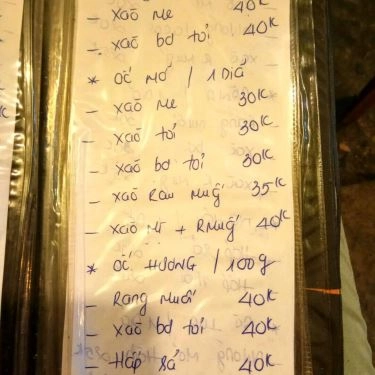 - xào me 40K
- xào bơ tỏi 40K
* ốc mỡ / 1 Dĩa
- xào me 30K
- xào tỏi 30K
- xào bơ tỏi 30K
- xào Rau muống 35K
- xào mì + Rmuống 40K
* ốc HƯƠNG / 100g
- Rang muối 40K
- xào bơ tỏi 40K
- Hấp sả 40K